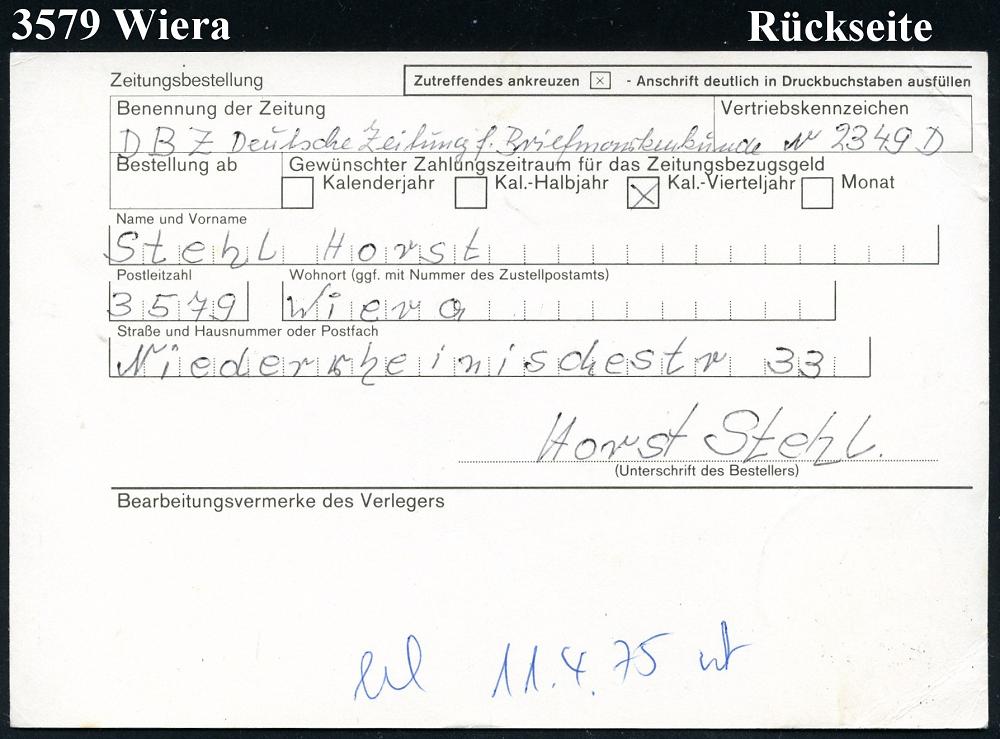 3579 Wiera Rückseite
Zeitungsbestellung Zutreffendes ankreuzen x - Anschrift deutlich in Druckbuchstaben ausfüllen
Benennung der Zeitung Vertriebskennzeichen
DBZ Deutsche Zeitung f. Briefmarkenkunde N 2349 D
Bestellung ab Gewünschter Zahlungszeitraum für das Zeitungsbezugsgeld
Kalenderjahr Kal.-Halbjahr x Kal.-Vierteljahr Monat
Name und Vorname
Stehl Horst
Postleitzahl Wohnort (ggf. mit Nummer des Zustellpostamts)
3579 Wiera
Straße und Hausnummer oder Postfach
Niederrheinischestr 33
Horst Stehl.
(Unterschrift des Bestellers)
Bearbeitungsvermerke des Verlegers
11.4.75